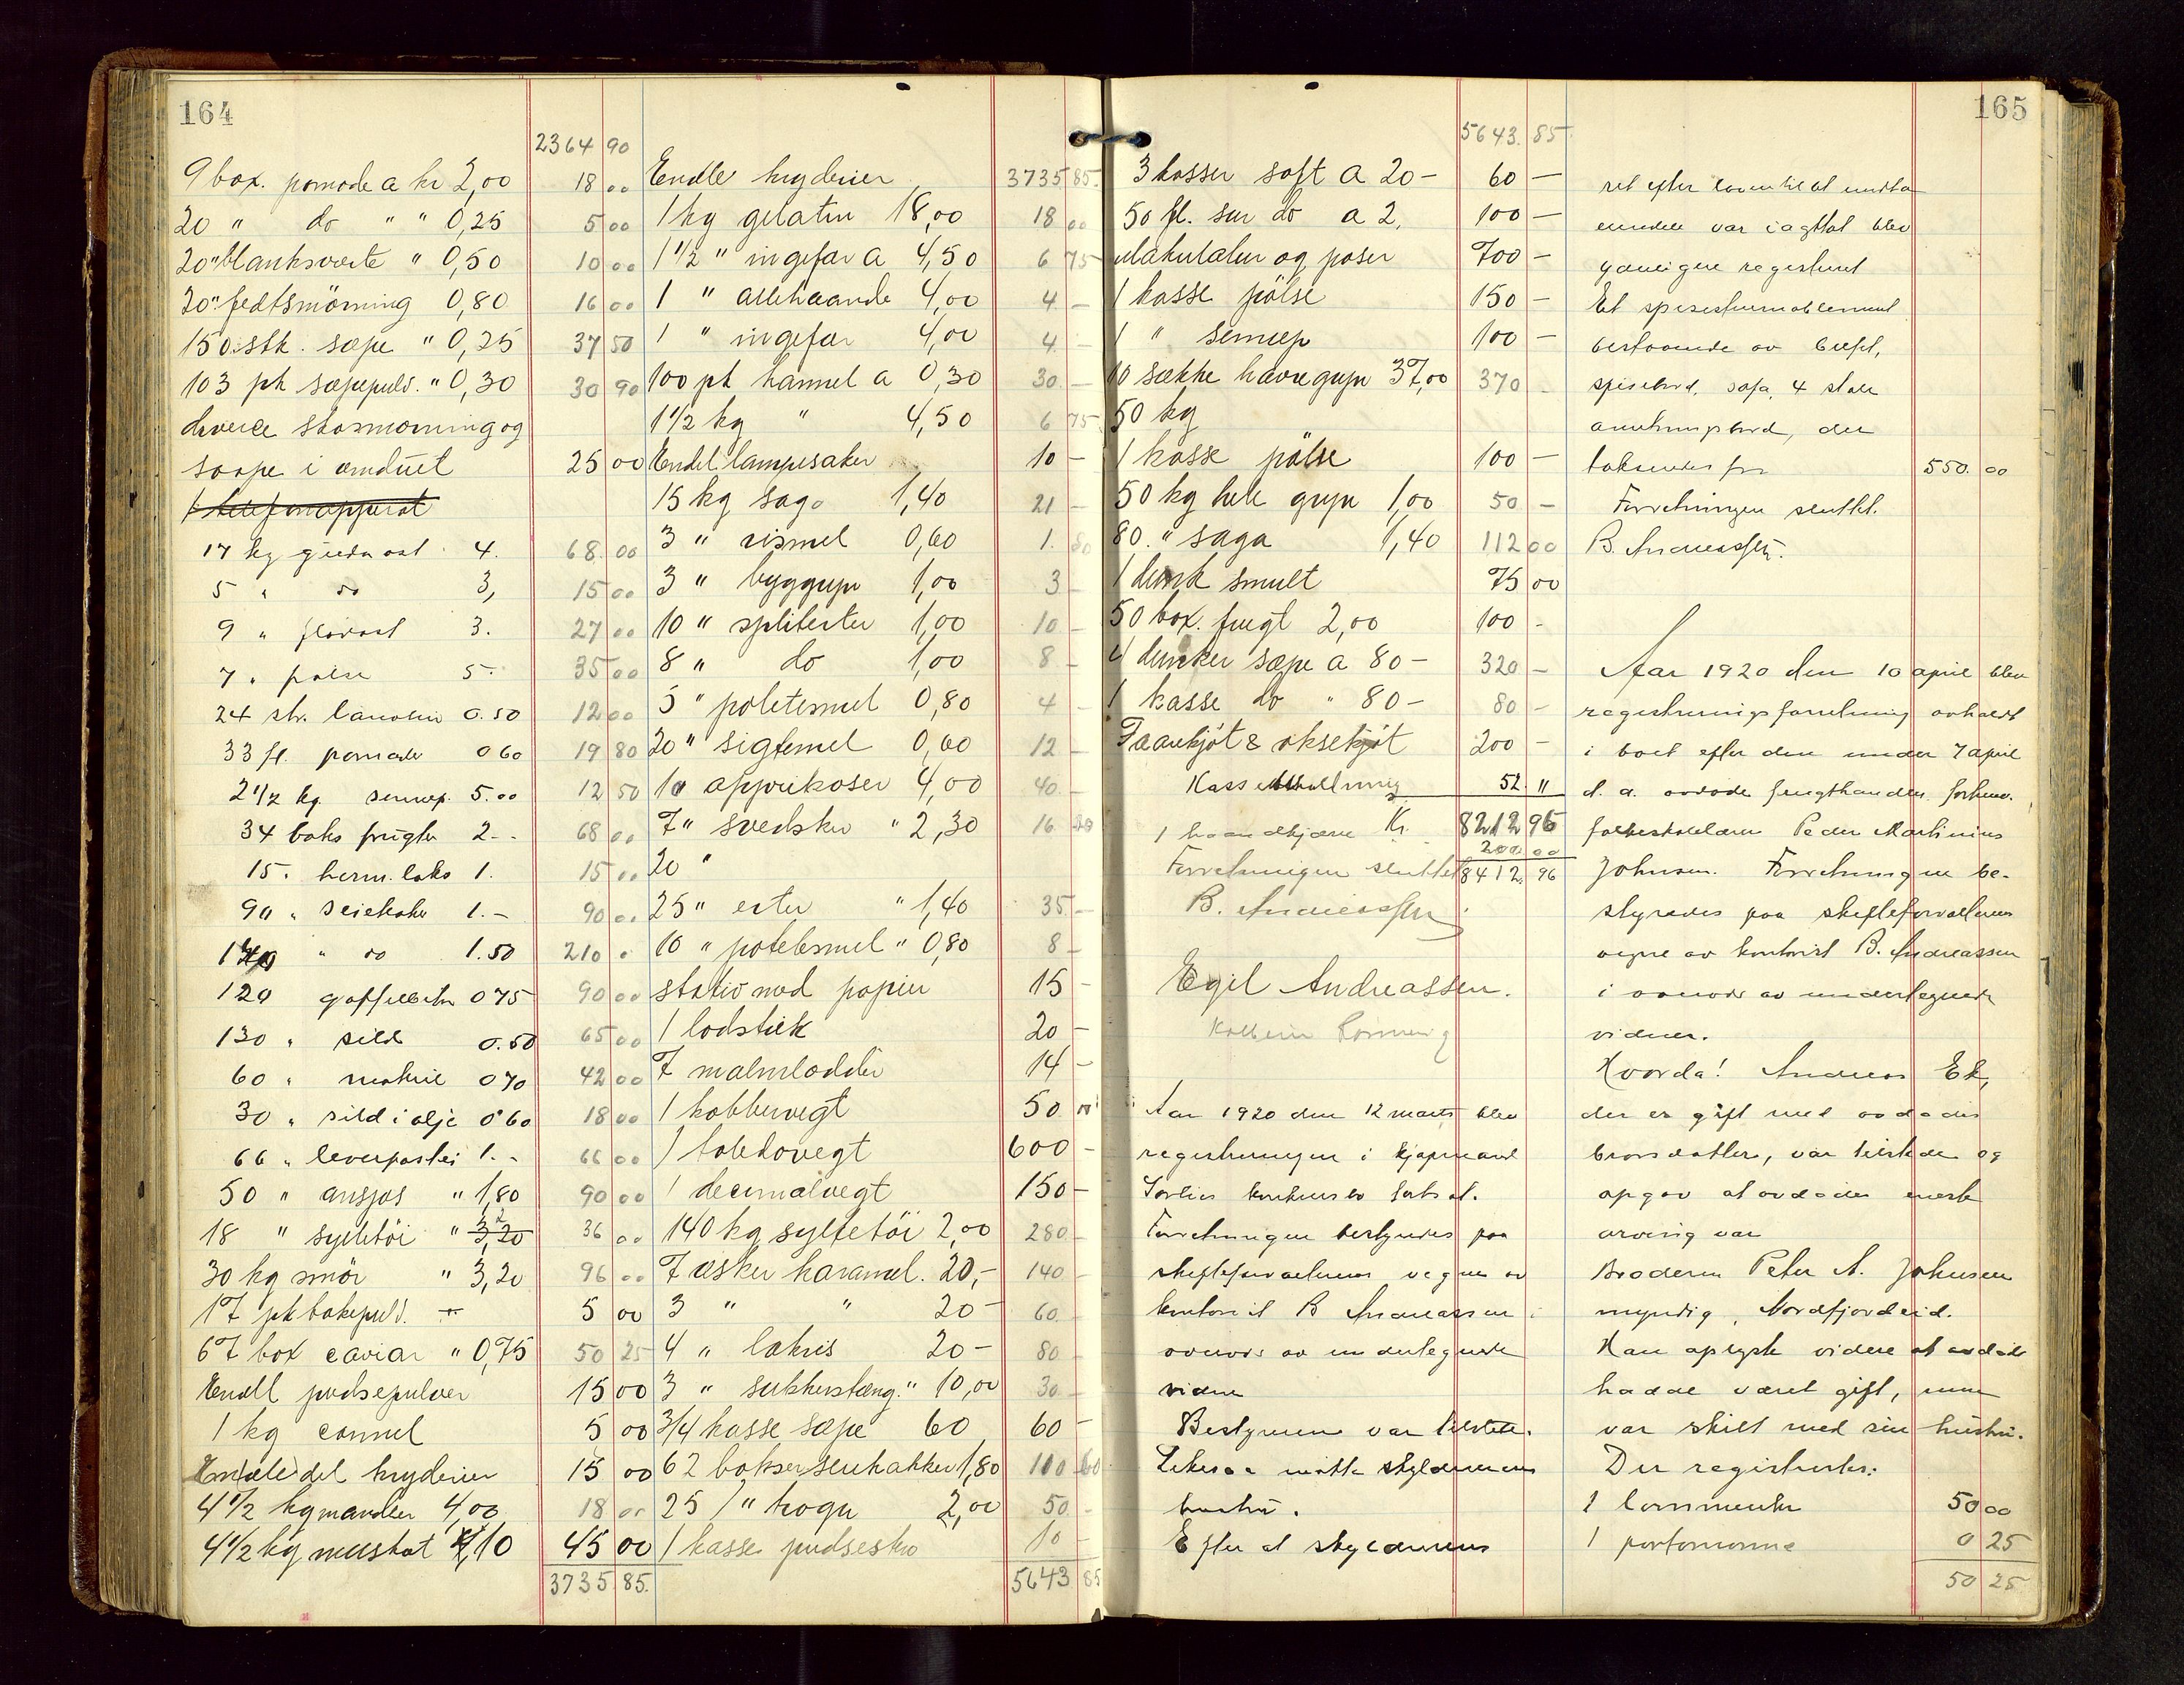 164
2364 90
9 box. pomade a kr 2,00 18 00
20 " do " " 0,25 5 00
20 " blanksværte " 0,50 10 00
20 " fedtsmörning 0,80 16 00
150 stk. sæpe " 0,25 37 50
103 pk sæpepulv. " 0,30 30 90
diverse skosmörning og
saape i vinduet 25 00
1 telefonapparat
17 kg gjedn ost 4. 68 00
5 " do 3, 15 00
9 " flödost 3. 27 00
7 " pølse 5- 35 00
24 str. lanolin 0.50 12 00
33 fl. pomade 0 60 19 80
2 1/2 kg. sennep. 5.00 12 50
34 boks frugter 2-- 68 00
15. " herm. laks 1. 15 00
90 " seiekaker 1.- 90 00
140 " do 1.50 210 "
120 gaffelbiter 0 75 90 00
130 " sild 0.50 65 00
60 " makril 0 70 42 00
30 " sild i olje 0 60 18 00
66 " leverpostei 1.- 66 00
50 " ansjos " 1,80 90 00
18 " syltetöi " 3,20 36 00
30 kg smör " 3,20 96 00
17 pk bakepulv. 5 00
67 box caviar " 0,75 50 25
Endel pudsepulver 15 00
1 kg cannel 5 00
del kryderier 15 00
4 1/2 kg mandler 4,00 18 00
4 1/2 kg muskat 10 45 00
3735 85.
Endel kryderier 3735 85.
1 kg gelatin 18,00 18 00
1 1/2 " ingefær a 4,50 6 75
1 " allehaande 4,00 4 -
1 " ingefær 4,00 4 -
100 pk kannel a 0,30 30 -
1 1/2 kg " 4,50 6 75
Endel lampesaker 10 -
15 kg sago 1,40 21 -
3 " rismel 0,60 1. 80
3 " byggryn 1,00 3 -
10 " spliterter 1,00 10 -
8 " do 1,00 8 -
5 " potetesmel 0,80 4 -
20 " sigtemel 0,60 12 -
10 apprikoser 4,00 40 -
7 " svedsker " 2,30 16
20 "
25 " erter " 1,40 35 -
10 " potetesmel " 0,80 8 -
stativ med papir 15 -
1 lodstik 20 -
7 malmlodder 14 -
1 kobbervegt 50 "
1 toledovegt 600 -
1 decimalvegt 150 -
140 kg syltetöi 2,00 280 -
7 æsker karamel. 20,- 140 -
3 " " 20- 60 -
4 " lakris 20- 80 -
3 " sukkerstæng. " 10,00 30 -
3/4 kasse sæpe 60 60 -
62 bokser seikakker 1,80 110 60
25 1/" rogn 2,00 50 -
1 kasse pudsesko 10 -
5643 85
165
5643. 85
3 kasser saft a 20- 60 -
50 fl. sur do a 2, 100 -
makulatur og poser 700 -
1 kasse pölse 150 -
1 " sennep 100 -
10 sække havregryn 37,00 370 -
50 kg
1 kasse pölse 100 -
50 kg hele gryn 1,00 50 -
80. " saga 1,40 112 00
1 dunk smult 75 00
50 box. frugt 2,00 100 -
4 dunker sæpe a 80- 320 -
1 kasse do " 80- 80 -
Faarekjöt & oksekjöt 200 -
Kassebeholdning 52. "
Kr. 8212 96
1 haandkjærre 200 00
Forretningen sluttet 8412. 96
B. Andreassen.
Egil Andreassen.
Aar 1920 den 12 marts blev
registreringen i kjøpmand
konkursbo fortsat.
Forretningen bestyredes paa
skifteforvalterens vegne av
kontorist B Andreassen i
overvær av undertegnede
vidner
Bestyreren var tilstede.
Likesaa møtte skyldnerens
hustru.
Efter at skyldnerens
ret efter loven til at undta
eiendele var iagttat blev
yderligere registrert
Et spisestuemøblement
bestaaende av buffet,
spisebord, sofa, 4 stole
anretningsbord, der
takseredes for 550. 00
Forretningen sluttet.
B. Andreassen.
Aar 1920 den 10 april blev
registreringsforretning avholdt
i boet efter den under 7 april
d. a. avdøde frugthandler, forhenv.
folkeskolelærer Peder Martinius
Johnsen. Forretningen be-
styredes paa skifteforvalterens
vegne av kontorist B. Andreassen
i overvær av undertegnede
vidner.
Hvorda! Andreas Ek,
der er gift med avdødes
brorsdatter, var tilstede og
opgav at avdødes eneste
arving var
Broderen Peter A. Johnsen
myndig, Nordfjordeid.
Han oplyste videre at avdøde
hadde været gift, men
var skilt med sin hustru.
Der registrertes:
1 lommeuhr 50 00
1 portomonne 0 25
50 25